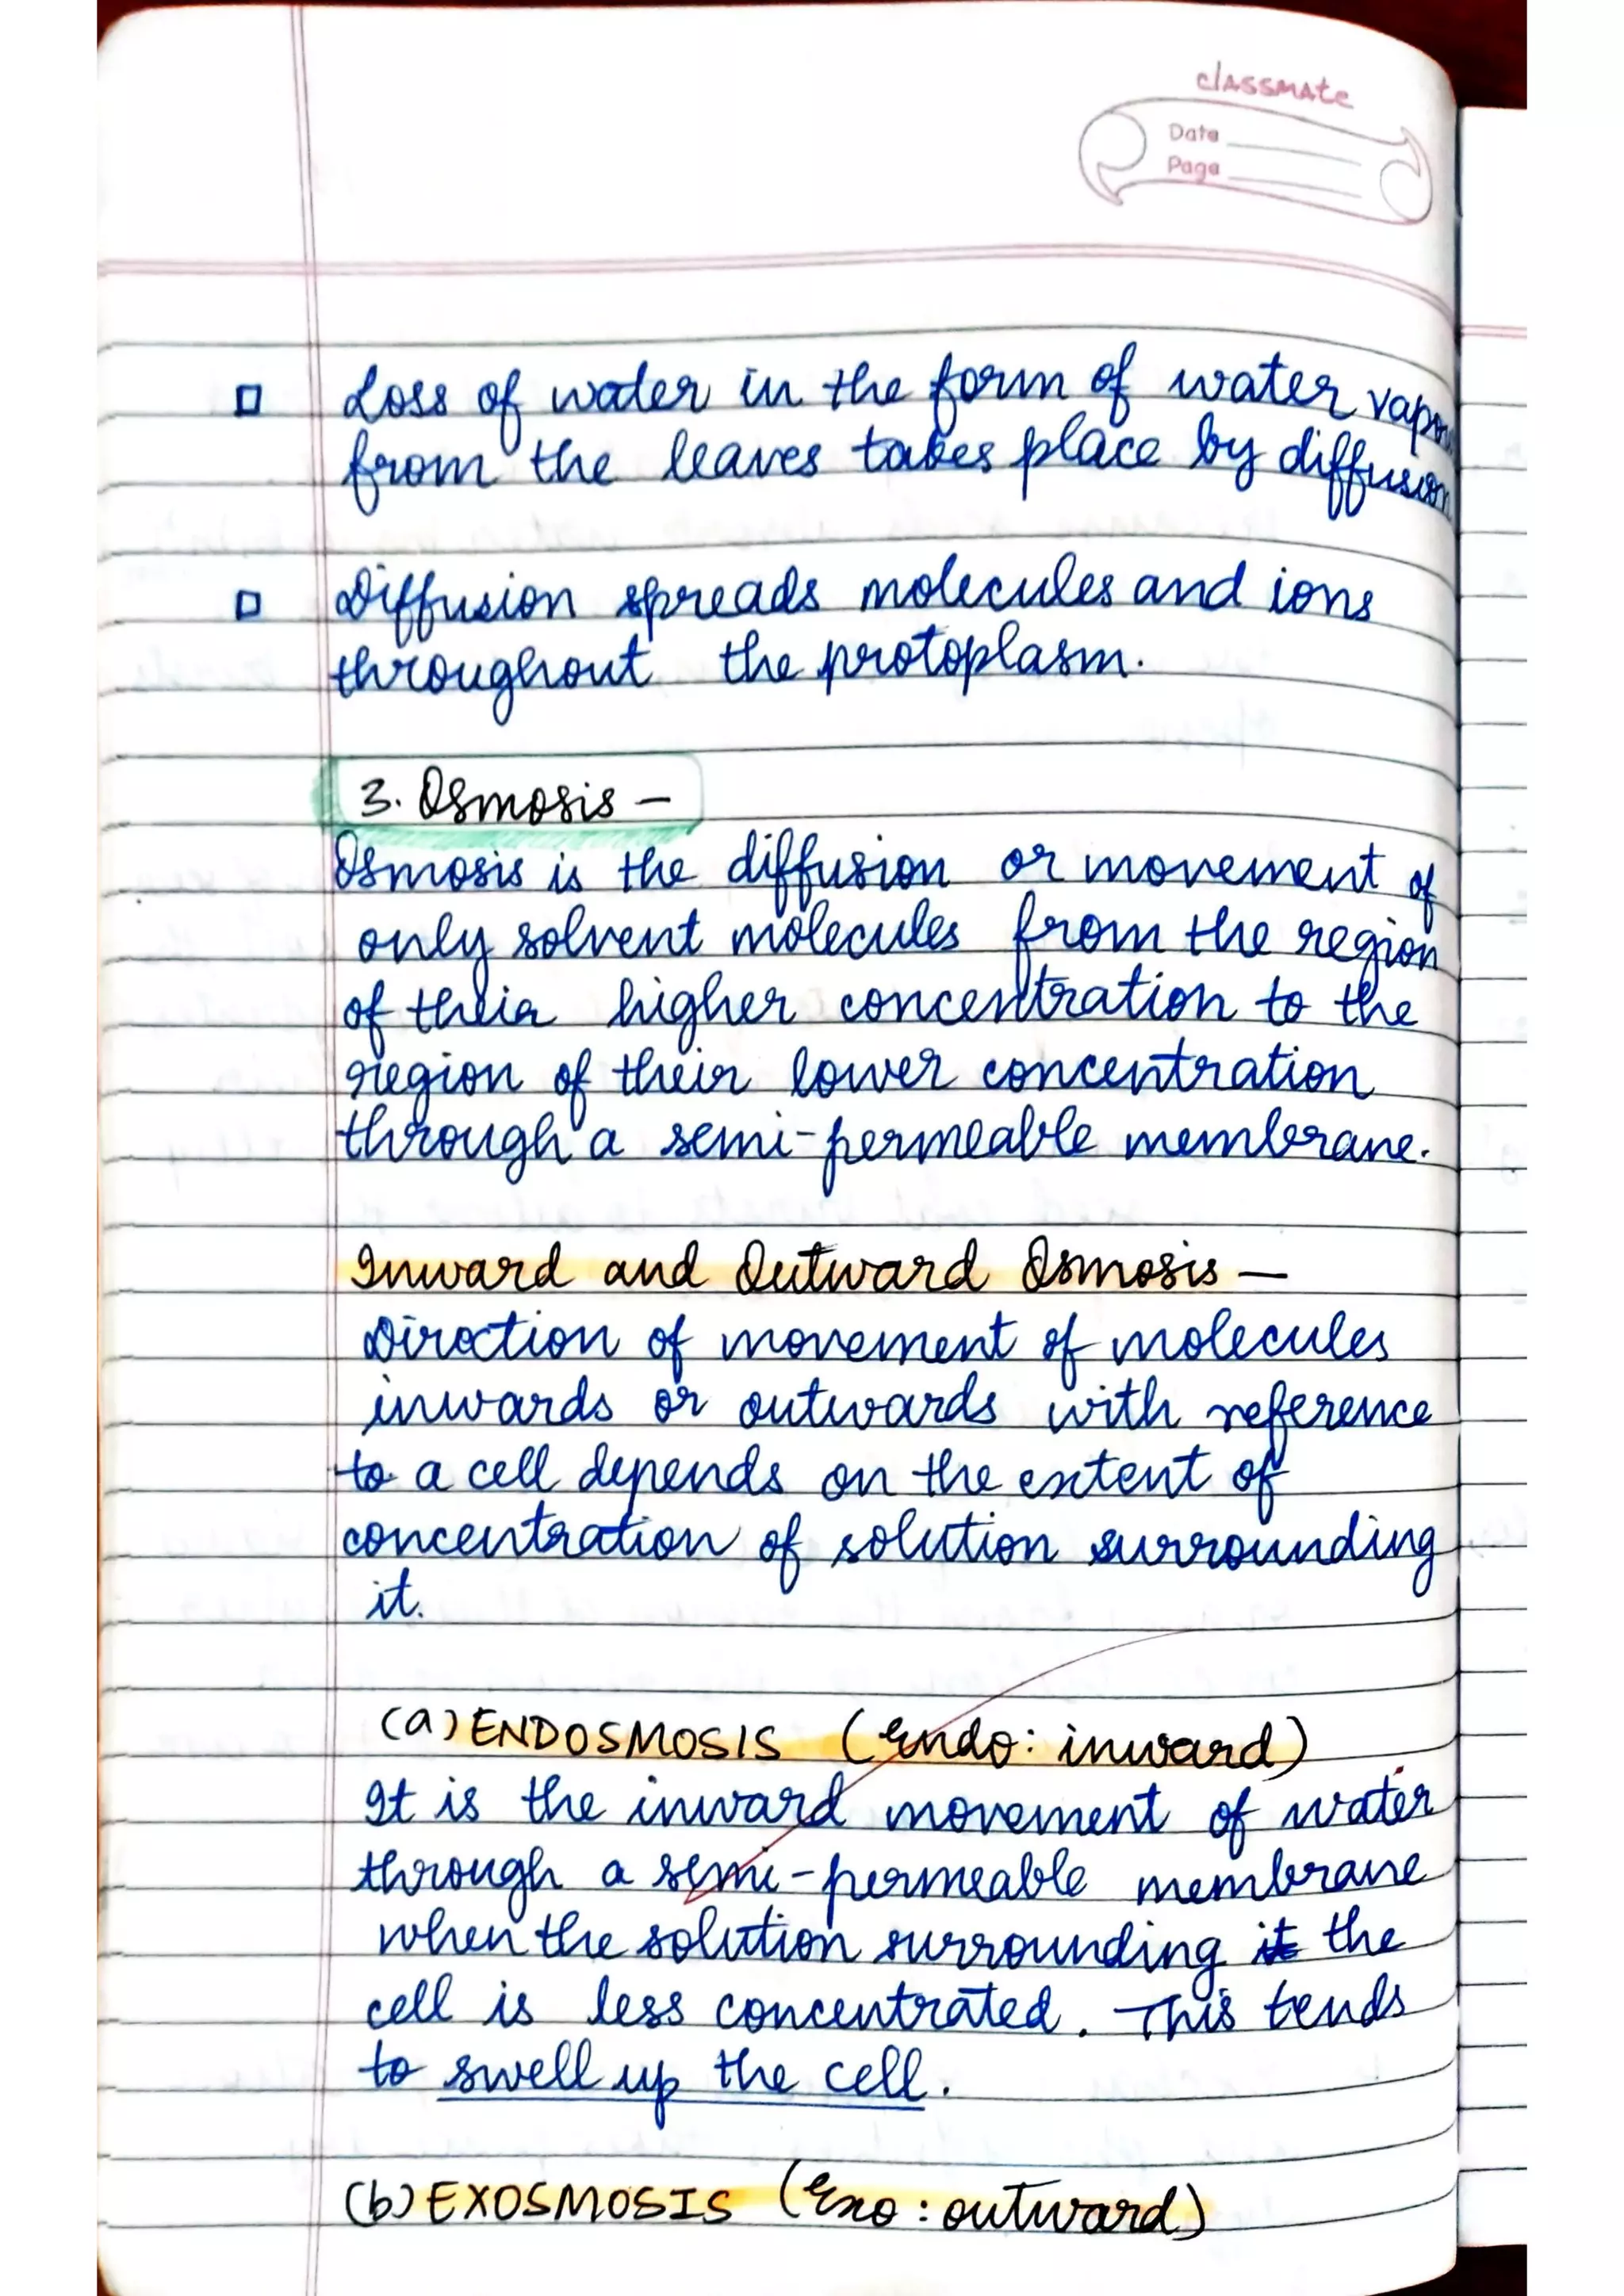 classmate
Date
Page
□ Loss of water in the form of water vapou
from the leaves takes place by diffusion
□ Diffusion spreads molecules and ions
throughout the protoplasm.
3. Osmosis –
Osmosis is the diffusion or movement of
only solvent molecules from the region
of their higher concentration to the
region of their lower concentration
through a semi-permeable membrane.
Inward and Outward Osmosis –
Direction of movement of molecules
inwards or outwards with reference
to a cell depends on the extent of
concentration of solution surrounding
it.
(a) ENDOSMOSIS (Endo: inward)
It is the inward movement of water
through a semi-permeable membrane
when the solution surrounding it the
cell is less concentrated. This tends
to swell up the cell.
(b) EXOSMOSIS (Exo: outward)